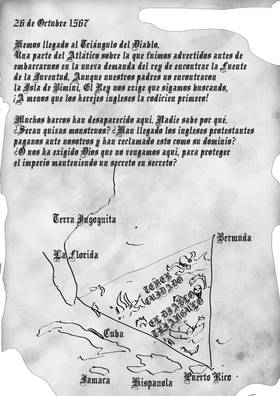 26 de Octubre 1567
Hemos llegado al Triángulo del Diablo.
Una parte del Atlático sobre la que fuimos advertidos antes de
embarcarnos en la nueva demanda del rey de encontrar la Fuente
de la Juventud. Aunque nuestros padres no encontraron
la Isla de Bimini, El Rey nos exige que sigamos buscando,
¡A menos que los herejes ingleses la codicien primero!
Muchos barcos han desaparecido aquí. Nadie sabe por qué.
¿Seran quizas monstruos? ¿Han llegado los ingleses protestantes
paganos ante nosotros y han reclamado esto como su dominio?
¿O nos ha exigido Dios que no vengamos aqui, para proteger
el imperio manteniendo un secreto en secreto?
Terra Incognita
Bermuda
La Florida
TENER
CUIDADO
EL DIABLO
TRIANGULO
Cuba
Jamaca
Hispanola
Puerto Rico